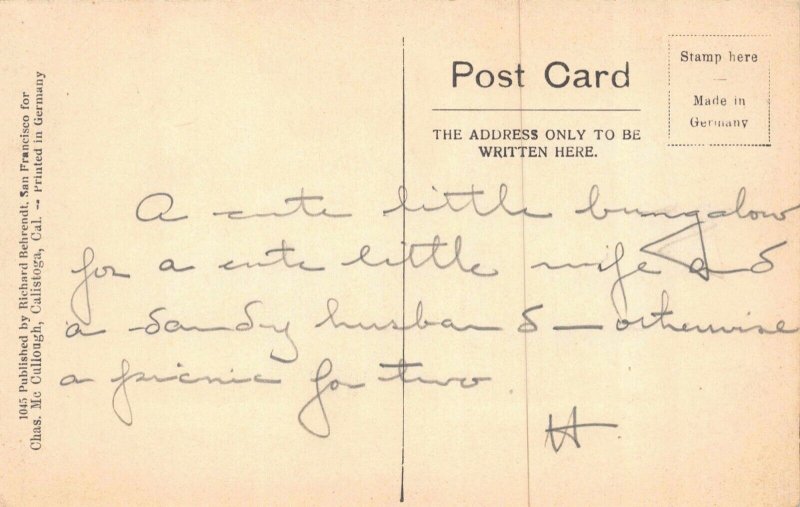 1045 Published by Richard Behrendt, San Francisco for
Chas. Mc Cullough, Calistoga, Cal. -- Printed in Germany
Post Card
THE ADDRESS ONLY TO BE
WRITTEN HERE.
Stamp here
Made in
Germany
A cute little bungalow
for a cute little wife and
a dandy husband — otherwise
a picnic for two.
H